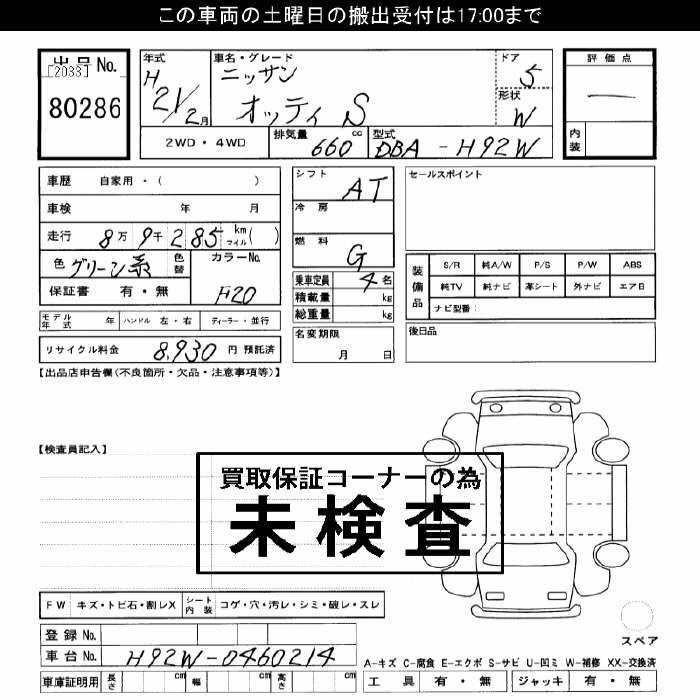 この車両の土曜日の搬出受付は17:00まで
出品No.
[2033]
80286
年式
H
21/2月
車名・グレード
ニッサン
オッティ S
ドア
5
形状
W
評価点
—
内装
2WD・4WD
排気量
660 cc
型式
DBA-H92W
車歴 自家用・( )
車検 年 月
走行 8万9千285 km マイル( )
色 グリーン系
色替
カラーNo.
F20
保証書 有・無
モデル年式 年
ハンドル 左・右
ディーラー・並行
リサイクル料金 8,930 円 預託済
シフト
AT
冷房
燃料
G
乗車定員 4名
積載量 kg
総重量 kg
名変期限
月 日
セールスポイント
装備品
S/R 純A/W P/S P/W ABS
純TV 純ナビ 革シート 外ナビ エアB
ナビ型番:
後日品
【出品店申告欄(不良箇所・欠品・注意事項等)】
【検査員記入】
買取保証コーナーの為
未検査
FW キズ・トビ石・割レX
シート内装 コゲ・穴・汚レ・シミ・破レ・スレ
登録No.
車台No. H92W-0460214
車庫証明用 長さ cm 幅 cm 高さ cm
スペア
A-キズ C-腐食 E-エクボ S-サビ U-凹ミ W-補修 XX-交換済
工具 有・無 ジャッキ 有・無